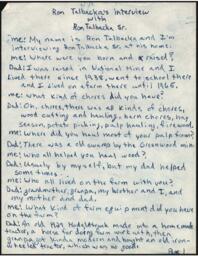 Ron Talbacka's Interview
with
Ron Talbacka Sr.
me: My name is Ron Talbacka and I'm
interviewing Ron Talbacka Sr. at his home.
me: Where were you born and raised?
Dad: I was raised in National Mine and I
lived there since 1938, went to school there
and I lived on farm there until 1965.
me: What kind of chores did you have?
Dad: Oh, chores, there was all kinds of chores,
wood cutting and hauling, barn chores, hay
season, potato picking, pulp hauling, firewood,
me: Where did you haul most of your pulp from?
Dad: There was a old swamp by the Greenwood min
me: who all helped you haul wood?
Dad: Usually by myself, but my dad helped
some times.
me: Who all lived on the farm with you?
Dad: grandmother, grampa, my brother and I, and
my mother and dad.
me: What kind of farm equipment did you have
on the farm?
Dad: An old 1929 Model A truck made into a homemade
tractor, to horse for doing farm work with, then
grampa got kinda modern and bought an old iron-
wheeled tractor, which was no good.
Page 1